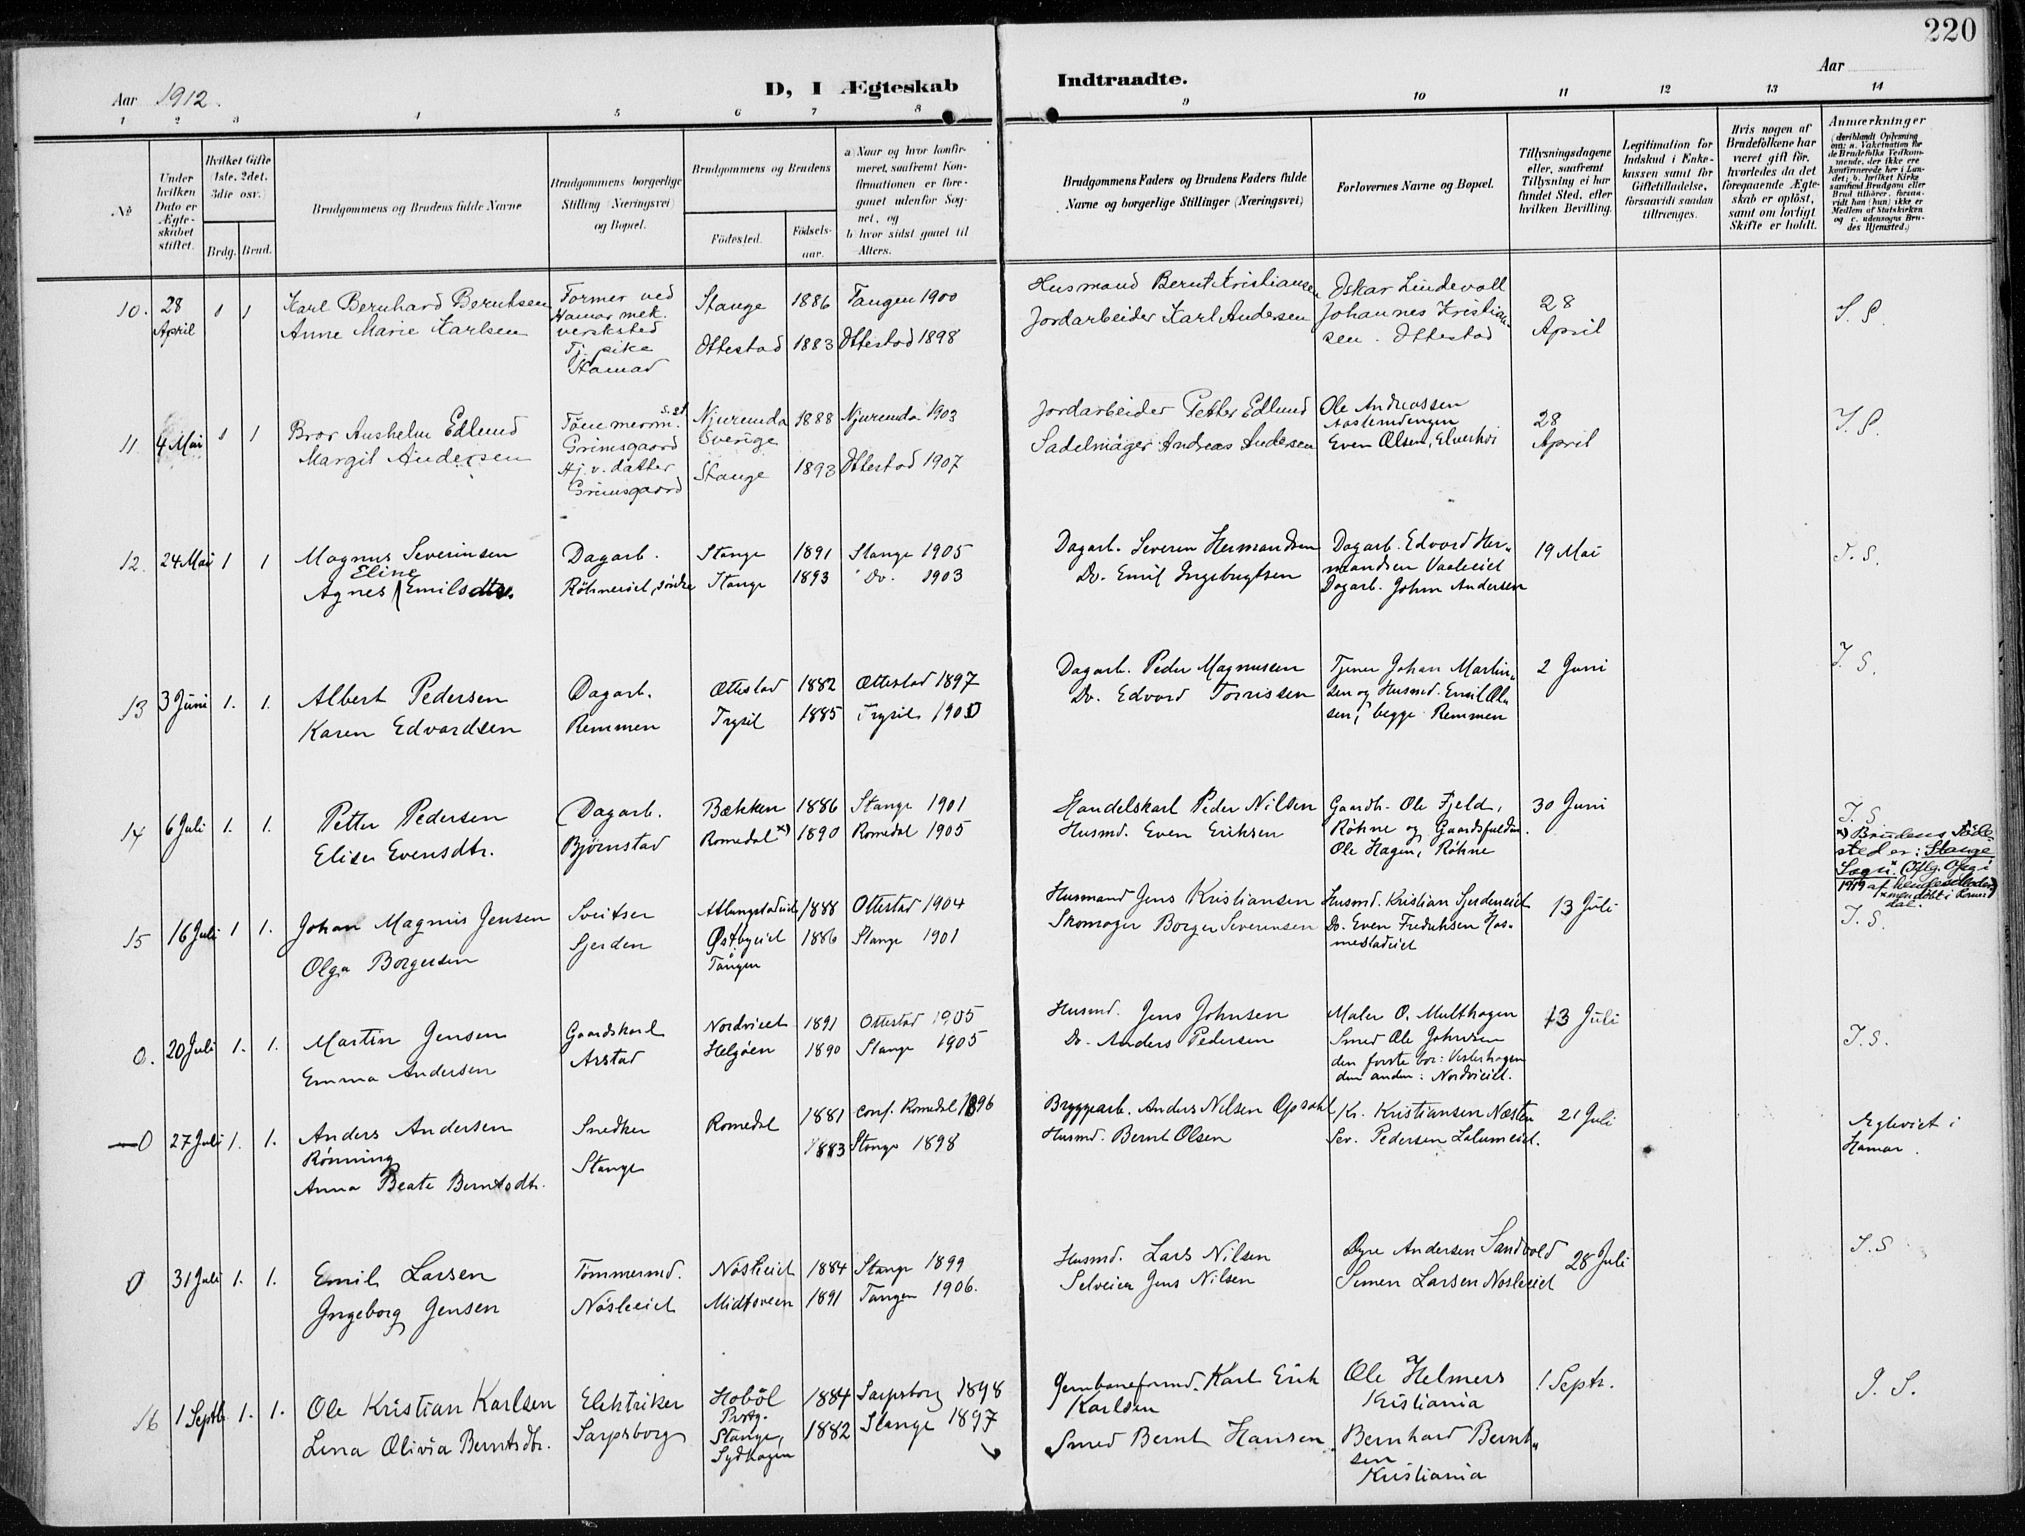 220
Aar 1912.
D, I Ægteskab Indtraadte.
Aar
1 2 3 4 5 6 7 8 9 10 11 12 13 14
No
Under hvilken Dato er Ægteskabet stiftet.
Hvilket Gifte (1ste, 2det, 3die osv.)
Brdg. Brud.
Brudgommens og Brudens fulde Navne
Brudgommens borgerlige Stilling (Næringsvei) og Bopæl.
Brudgommens og Brudens
Fødested.
Fødselsaar.
a) Naar og hvor konfirmeret, saafremt Konfirmationen er foregaaet udenfor Sognet, og
b hvor sidst gaaet til Alters.
Brudgommens Faders og Brudens Faders fulde Navne og borgerlige Stillinger (Næringsvei)
Forlovernes Navne og Bopæl.
Tillysningsdagene eller, saafremt Tillysning ei har fundet Sted, efter hvilken Bevilling.
Legitimation for Indskud i Enkekassen samt for Giftetilladelse, forsaavidt saadan tiltrænges.
Hvis nogen af Brudefolkene har været gift før, hvorledes da det foregaaende Ægteskab er opløst, samt om lovligt Skifte er holdt.
Anmærkninger
(deriblandt Oplysning om: a. Vakcination for de Brudefolks Vedkommende, der ikke ere konfirmerede her i Landet; b. hvilket Kirkesamfund Brudgom eller Brud tilhører, forsaavidt han (hun) ikke er Medlem af Statskirken og c. udensogns Brudes Hjemsted.)
10. 28 April 1 1 Karl Bernhard Berntsen Former ved Hamar mek. verksted Stange 1886 Tangen 1900 Husmand Bernt Kristiansen Oskar Lindevoll 28 April
Anne Marie Karlsen Tj. pike Hamar Ottestad 1883 Ottestad 1898 Jordarbeider Karl Andersen Johannes Kristiansen. Ottestad
11 4 Mai 1 1 Bror Anshelm Edlund Grimsgaard Njurunda Sverige 1888 Njurunda 1903 Jordarbeider Petter Edlund Ole Andreassen 28 April
Margit Andersen Hj. v. datter Grimsgaard Stange 1893 Ottestad 1907 Sadelmager Andreas Andersen Even Olsen, Elverhøi
12. 24 Mai 1 1 Magnus Severinsen Dagarb. Stange 1891 Stange 1905 Dagarb. Severin Hermandsen Dagarb. Edvard Hermandsen 19 Mai
Agnes Eline Emilsdtr. Røhneeiet, søndre Stange 1893 Do. 1903 Do. Emil Ingebrigtsen Dagarb. Johan Andersen
13 3 Juni 1. 1. Albert Pedersen Dagarb. Ottestad 1882 Ottestad 1897 Dagarb. Peder Magnussen Tjener Johan Martinsen og Husmd. Emil Olsen, begge Remmen 2 Juni
Karen Edvardsen Remmen Trysil 1885 Trysil 1900 Do. Edvard Torrissen
14 6 Juli 1. 1. Petter Pedersen Dagarb. Bækken 1886 Stange 1901 Handelskarl Peder Nilsen Gaardbr. Ole Fjeld, 30 Juni
Elise Evensdtr. Bjørnstad Romedal x) 1890 Romedal 1905 Husmd. Even Eriksen Røhne og Ole Hagen, Røhne
x) Brudens Fødested er: Stange Sogn.
15 16 Juli 1 1. Johan Magnus Jensen Sveitser 1888 Ottestad 1904 Husmand Jens Kristiansen Husmd. Kristian Gjerdeneiet 13 Juli
Olga Borgersen Gjerden Østbyeiet Tangen 1886 Stange 1901 Skomager Borger Severinsen Do. Even Fredriksen
0. 20 Juli 1. 1. Martin Jensen Gaardskarl Nordvieiet 1891 Ottestad 1905 Husmd. Jens Johnsen Maler O. Multhagen 13 Juli
Emma Andersen Arstad Helgøen 1890 Stange 1905 Do. Anders Pedersen Smed Ole Johnsen
den første bor: Vesterhagen den anden: Nordvieiet.
0 27 Juli 1. 1. Anders Andersen Rønning Snedker Romedal 1881 conf. Romedal 1896 Bryggearb. Anders Nilsen Opsahl Kr. Kristiansen Næsten 21 Juli Egteviet i Hamar.
Anna Beate Berntsdtr. Stange 1883 Stange 1898 Husmd. Bernt Olsen Sev. Pedersen Lalumeiet.
0 31 Juli 1. 1. Emil Larsen Tømmermd. Nøsleeiet 1884 Stange 1899 Husmd. Lars Nilsen Dyre Andersen Sandvold 28 Juli
Ingeborg Jensen Nøsleeiet Midtsveen 1891 Tangen 1906. Selveier Jens Nilsen Simen Larsen Nøsleeiet
16 1 Septbr 1. 1. Ole Kristian Karlsen Elektriker Hobøl Prstg. 1884 Sarpsborg 1898 Jernbaneformd. Karl Erik Karlsen Ole Helmers Kristiania 1 Septr.
Lina Olivia Berntsdtr. Sarpsborg Stange, Sydhagen 1882 Stange 1897 Smed Bernt Hansen Bernhard Berntsen Kristiania